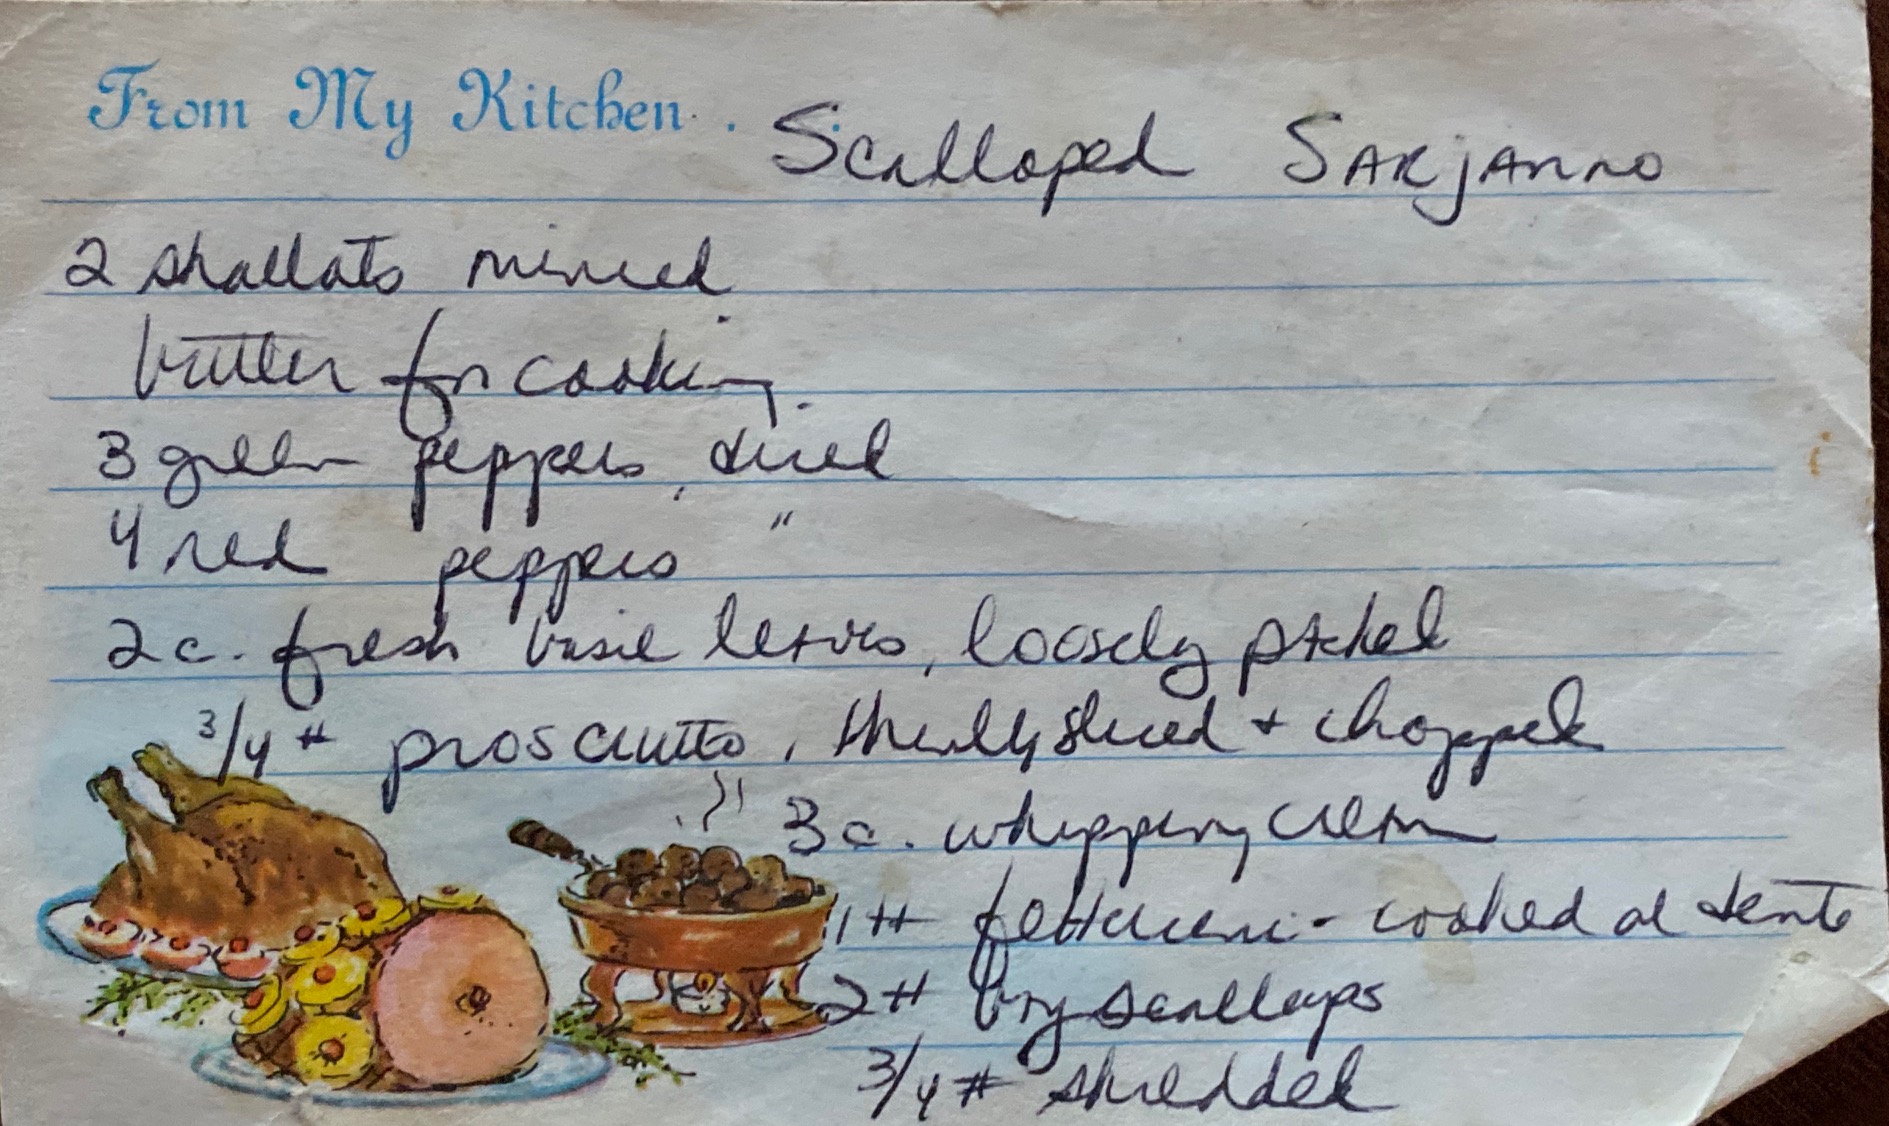 From My Kitchen . Scalloped SARJANNO
2 shallots minced
butter for cooking.
3 green peppers, diced
4 red peppers "
2 c. fresh basil leaves, loosely packed
3/4 # prosciutto, thinly sliced + chopped
3 c. whipping cream
1 # fettuccini - cooked al dente
2 # bay scallops
3/4 # shredded